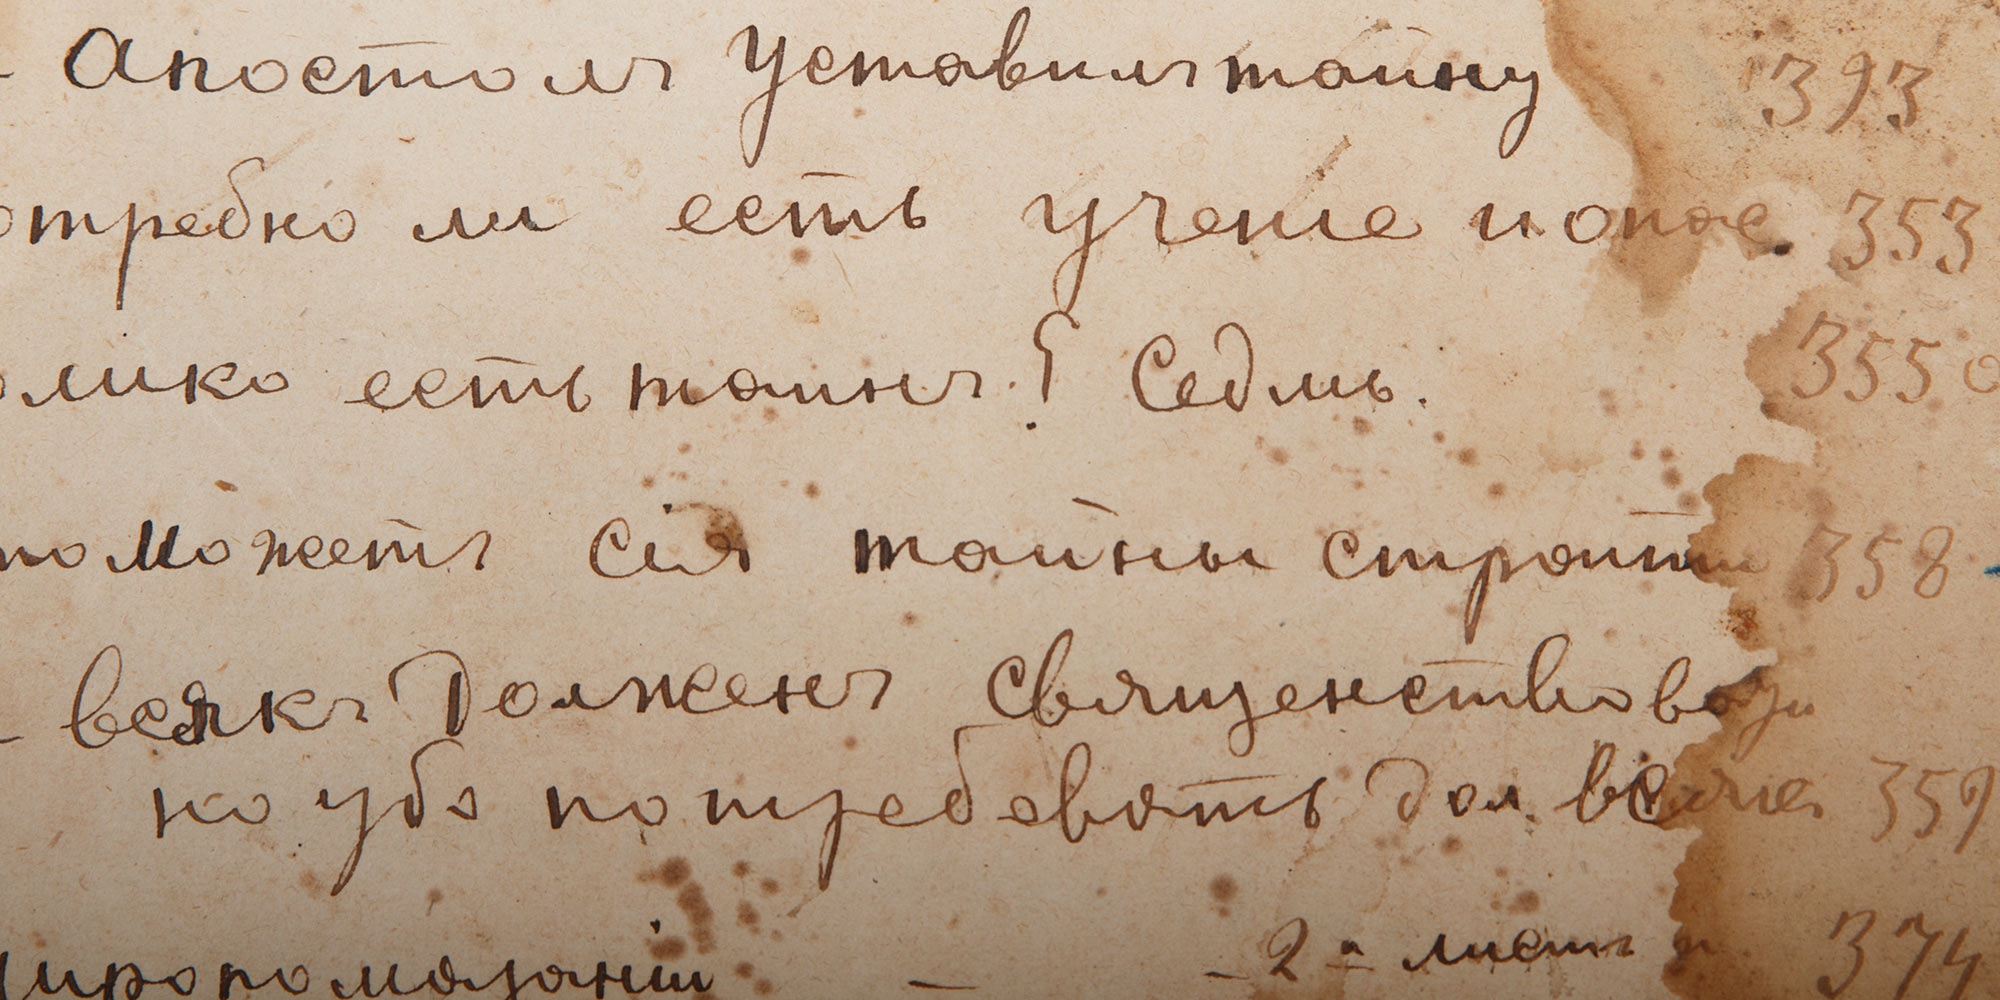 - Апостолъ Уставилъ тайну 393
отребно ли есть учение и опас. 353
олико есть таинъ? Седмь. 355 о
по можетъ сія тайны строити 358 -
- всякъ Долженъ священствова
но убо потребевать дол. 359
Миропомазаніи - - 2й листъ 374